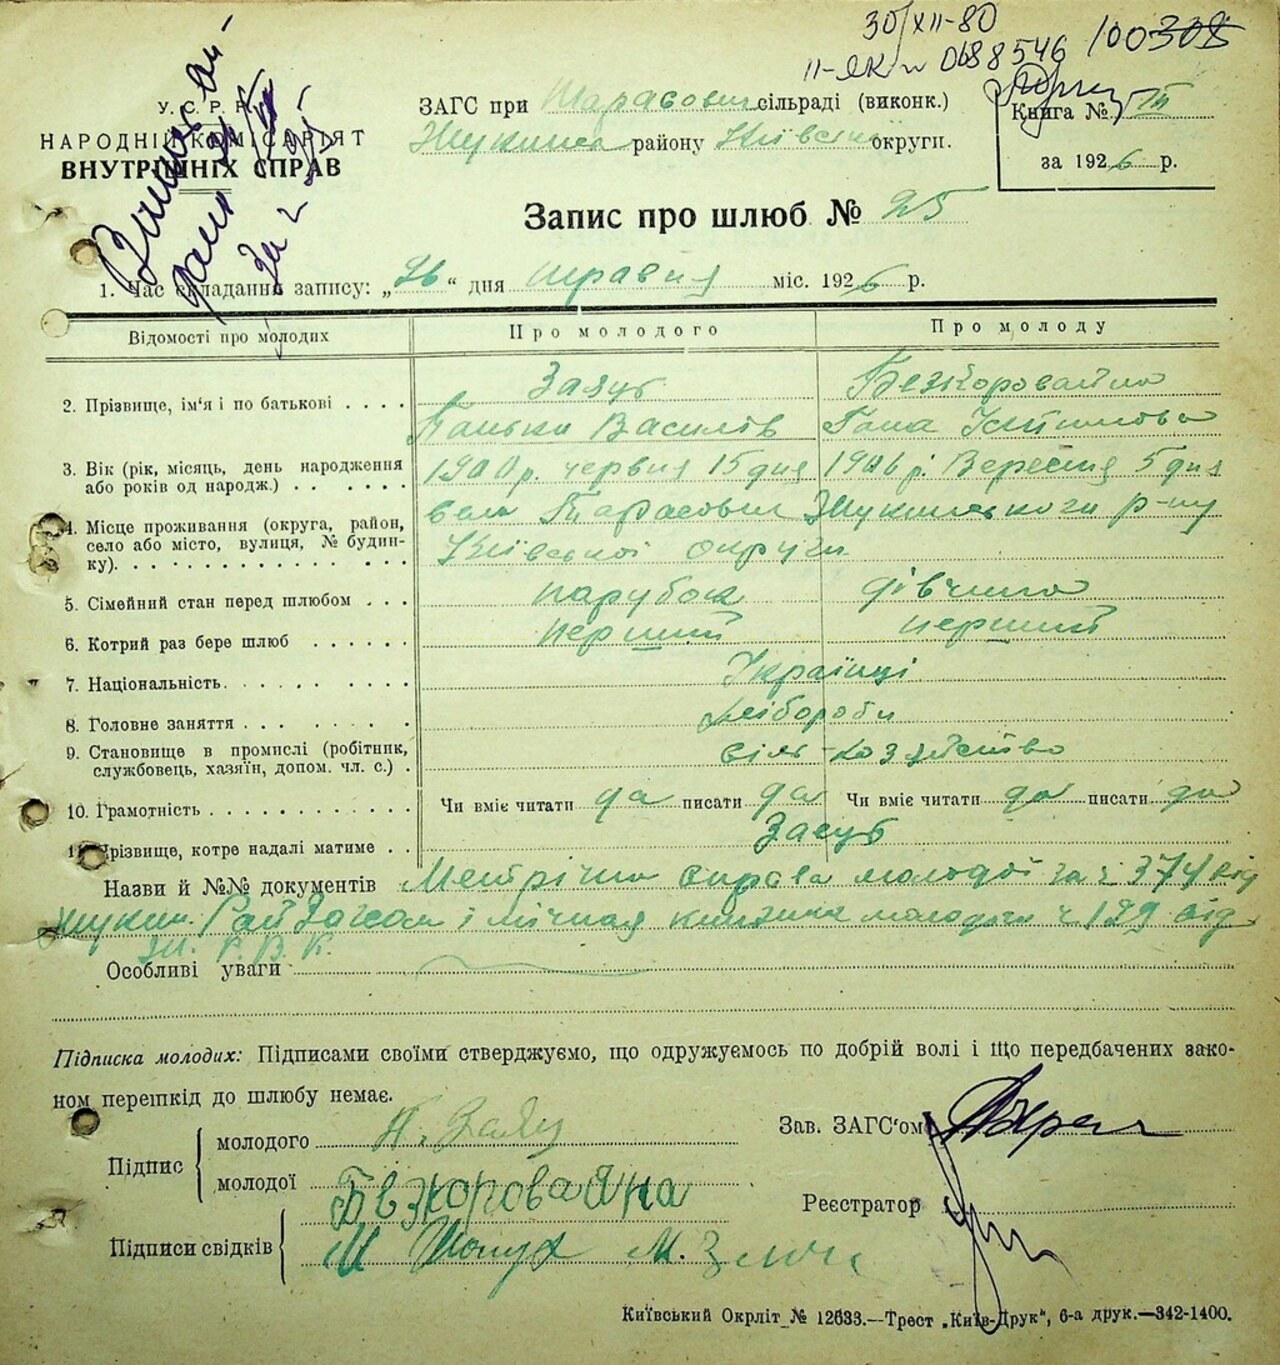 30/XII-80
II-ЯК № 068546 100308
У. С. Р. Р.
НАРОДНІЙ КОМІСАРІЯТ
ВНУТРІШНІХ СПРАВ
ЗАГС при Тарасовиц сільраді (виконк.)
Жукинсь району Київської округи.
Книга № III
за 1926 р.
Запис про шлюб № 25
1. Час складання запису: „26“ дня травня міс. 1926 р.
Відомості про молодих Про молодого Про молоду
2. Прізвище, ім'я і по батькові . . . . Заяць Безкоровайна
Панько Василів Гана Устимова
3. Вік (рік, місяць, день народження 1900 р. червня 15 дня 1906 р. Вересня 5 дня
або років од народж.) . . . . . .
4. Місце проживання (округа, район, село Тарасовичі Жукинського р-ну
село або місто, вулиця, № будин- Київської округи
ку). . . . . . . . . . . . . . .
5. Сімейний стан перед шлюбом . . . парубок дівчина
6. Котрий раз бере шлюб . . . . . . перший перший
7. Національність. . . . . . . . . . Українці
8. Головне заняття . . . . . . . . хлібороби
9. Становище в промислі (робітник, сіль-хозяйство
службовець, хазяїн, допом. чл. с.) .
10. Грамотність . . . . . . . . . . . Чи вміє читати да писати да Чи вміє читати да писати да
11. Прізвище, котре надалі матиме . . Заяць
Назви й №№ документів Метрична справа молодої за ч 374 від
Жукин. Рай Загсом і лічная книжка молодого ч 129 від
Ж. Р. В. К.
Особливі уваги
Підписка молодих: Підписами своїми стверджуємо, що одружуємось по добрій волі і що передбачених зако-
ном перешкід до шлюбу немає.
Підпис
молодого П. Заяц
молодої Безкоровайна
Підписи свідків М М.
Зав. ЗАГС'ом
Реєстратор
Київський Окрліт № 12633.—Трест „Київ-Друк“, 6-а друк.—342-1400.